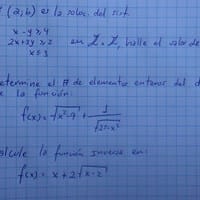 (a;b) es la soluc. del sist.
x - y ≥ 4
2x + 3y ≥ 2 en ℤ × ℤ, halle el valor de
x ≤ 3
termine el # de elementos enteros del d
la función:
f(x) = √x² - 9 + 1
calcule la función inversa en:
f(x) = x + 2√x - 2